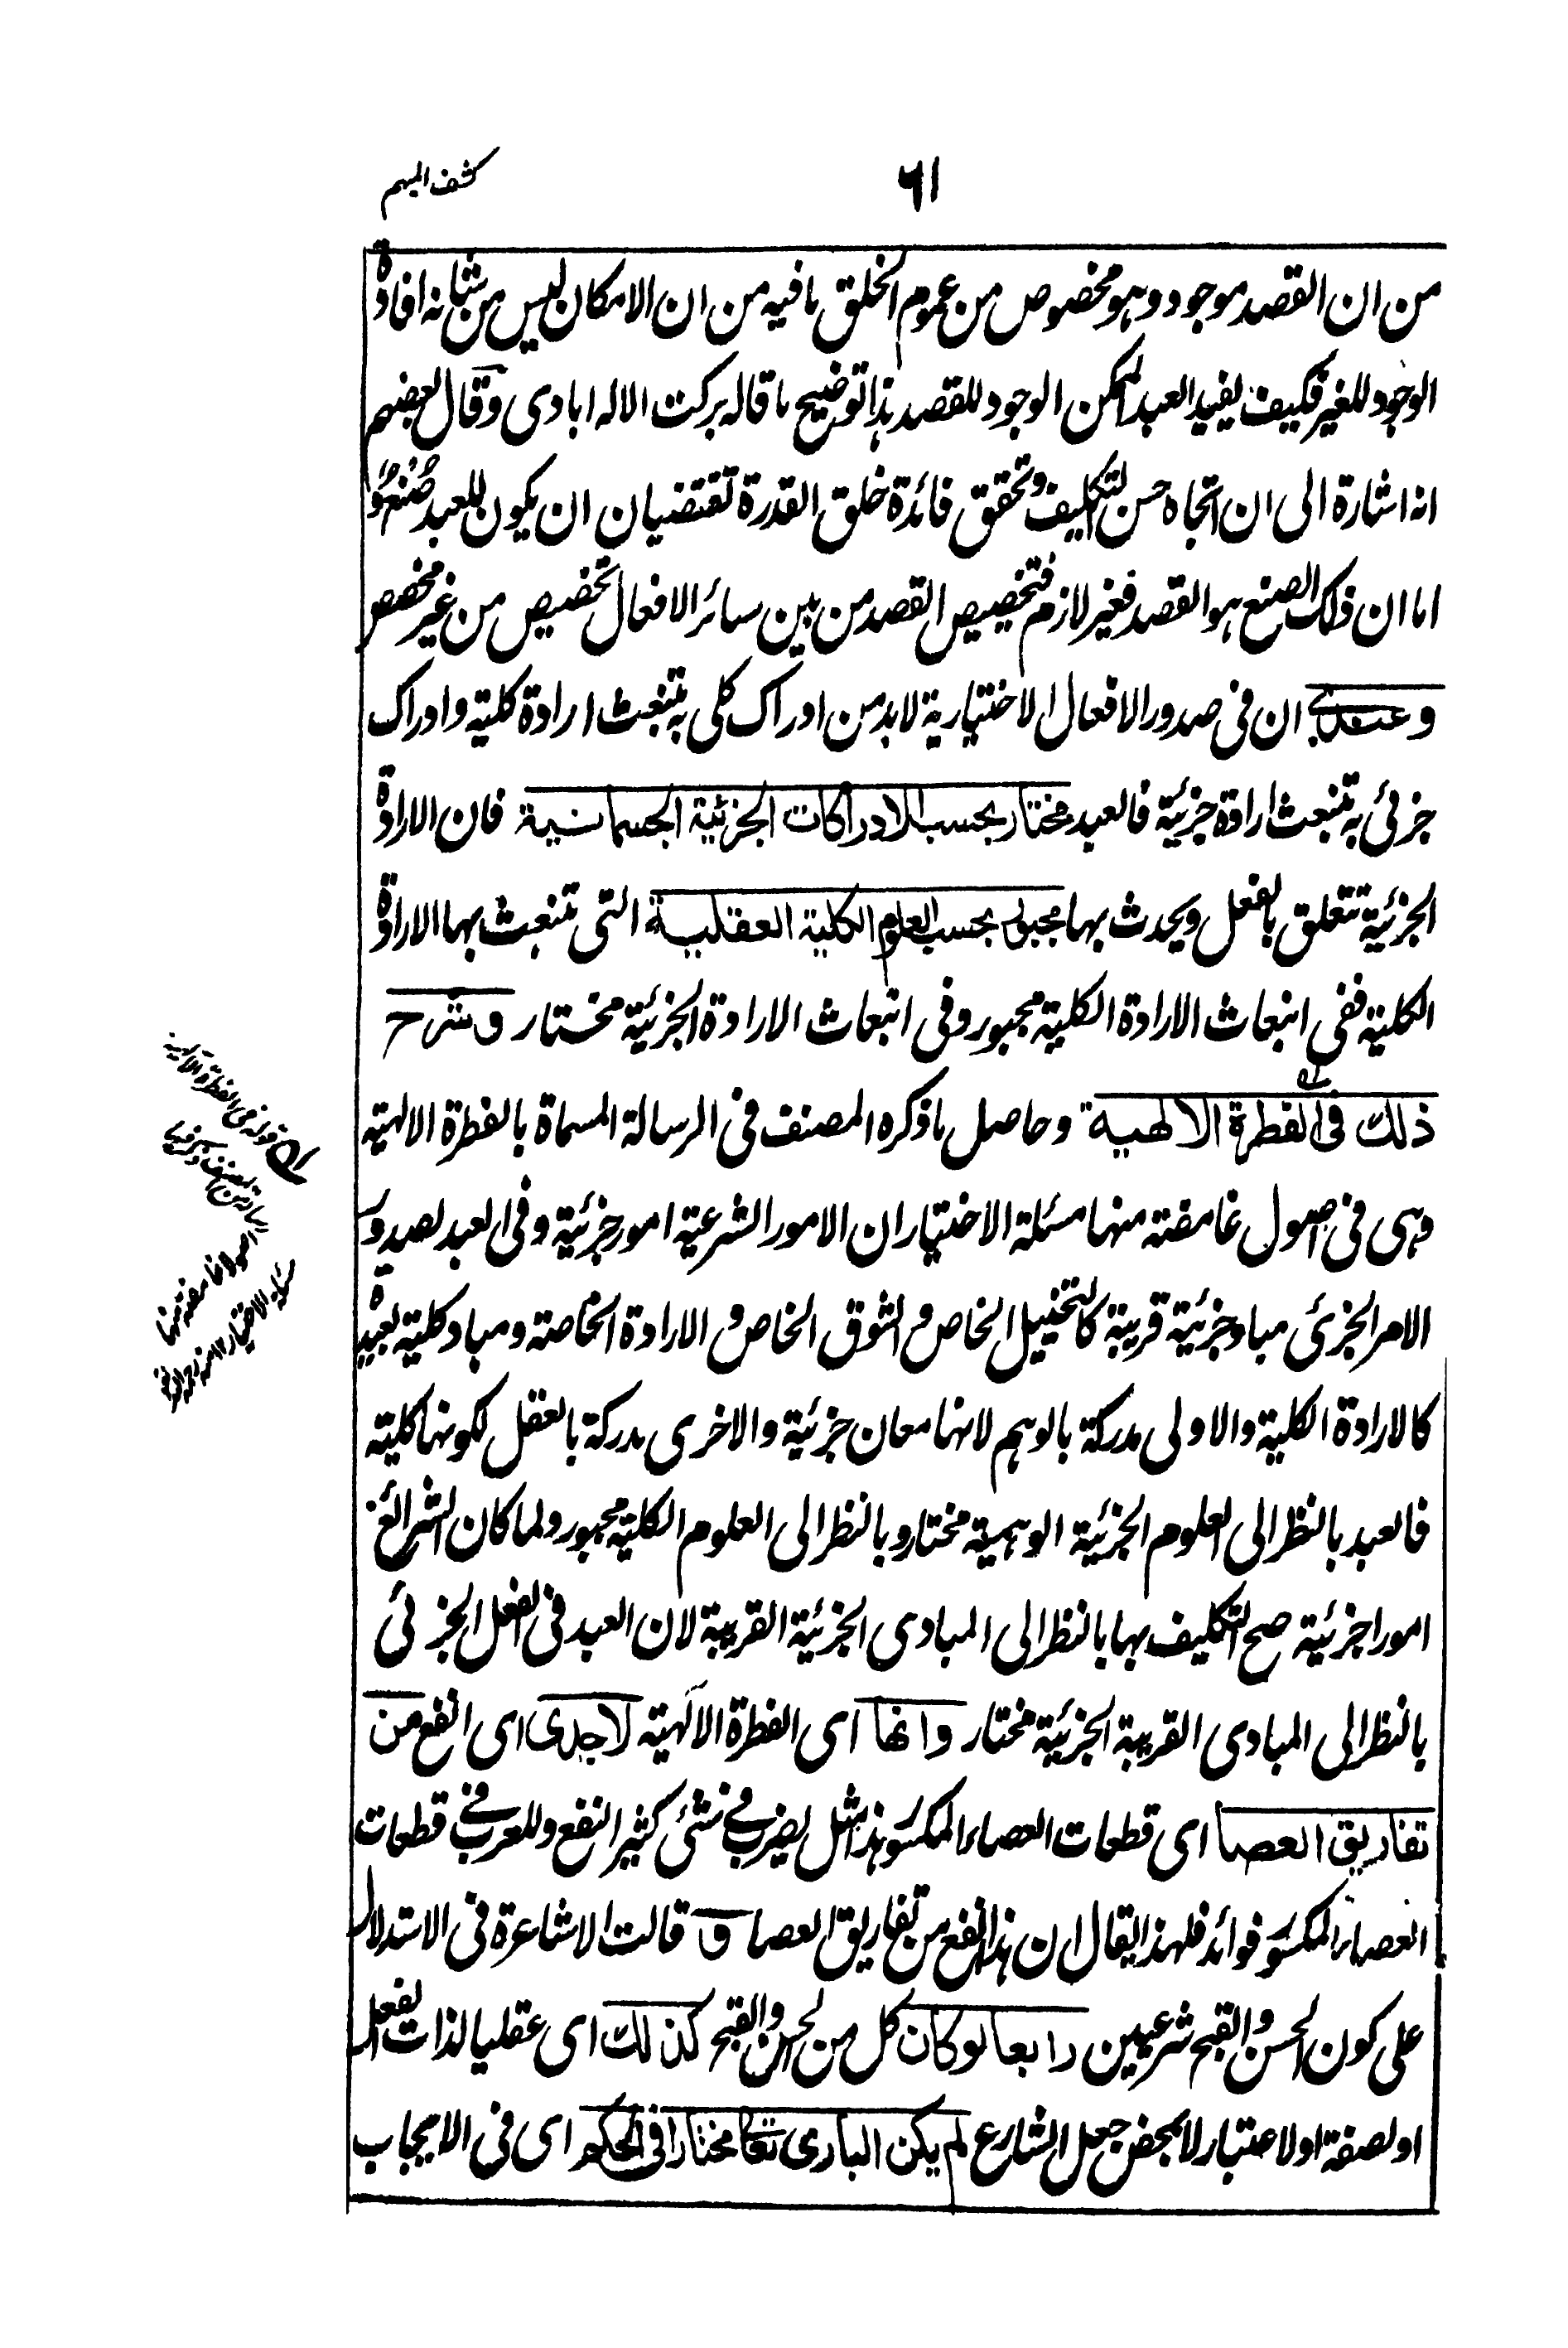 ٦١
كشف المبهم
من ان القصد موجود وهو مخصوص من عموم الخلق ما فيه من ان الامكان ليس من شانه افادة
الوجود للغير فكيف يفيد العبد الممكن الوجود للقصد هذا توضيح ما قاله بركت الاله ابادى وقال بعضهم
انه اشارة الى ان اتجاه حسن التكليف وتحقق فائدة خلق القدرة تقتضيان ان يكون للعبد صنع و
اما ان ذلك الصنع هو القصد فغير لازم فتخصيص القصد من بين سائر الافعال تخصيص من غير مخصص
وعندى ان فى صدور الافعال الاختيارية لابد من ادراك كلى به تنبعث ارادة كلية وادراك
جزئى به تنبعث ارادة جزئية فالعبد مختار بحسب الادراكات الجزئية الجسمانية فان الارادة
الجزئية تتعلق بالفعل ويحدث بها مجبور بحسب العلوم الكلية العقلية التى تنبعث بها الارادة
الكلية ففى انبعاث الارادة الكلية مجبور وفى انبعاث الارادة الجزئية مختار وشرح
ذلك فى الفطرة الالهية وحاصل ما ذكره المصنف فى الرسالة المسماة بالفطرة الالهية
وهى فى اصول غامضة منها مسئلة الاختيار ان الامور الشرعية امور جزئية وفى العبد لصدور
الامر الجزئى مباد جزئية قريبة كالتخييل الخاص والشوق الخاص والارادة الخاصة ومباد كلية بعيدة
كالارادة الكلية والاولى مدركة بالوهم لانها معان جزئية والاخرى مدركة بالعقل لكونها كلية
فالعبد بالنظر الى العلوم الجزئية الوهمية مختار وبالنظر الى العلوم الكلية مجبور ولما كان الشرائع
امورا جزئية صح التكليف بها بالنظر الى المبادى الجزئية القريبة لان العبد فى الفعل الجزئى
بالنظر الى المبادى القريبة الجزئية مختار وانها اى الفطرة الالٰهية لاجدى اى انفع من
تفاريق العصا اى قطعات العصاء المكسور هذا مثل يضرب فى شئ كثير النفع وللعرب فى قطعات
العصاء المكسور فوائد فلهذا يقال ان هذا انفع من تفاريق العصا و قالت الاشاعرة فى الاستدلال
على كون الحسن والقبح شرعيين رابعا لو كان كل من الحسن والقبح كذلك اى عقليا لذات الفعل
او لصفة او لاعتبار لا بمحض جعل الشارع لم يكن البارى تعالى مختارا فى الحكم اى فى الايجاب
قوله فى الفطرة الالهية
رسالة من المصنف وهى فى
اصول غامضة منها
مسئلة الاختيار